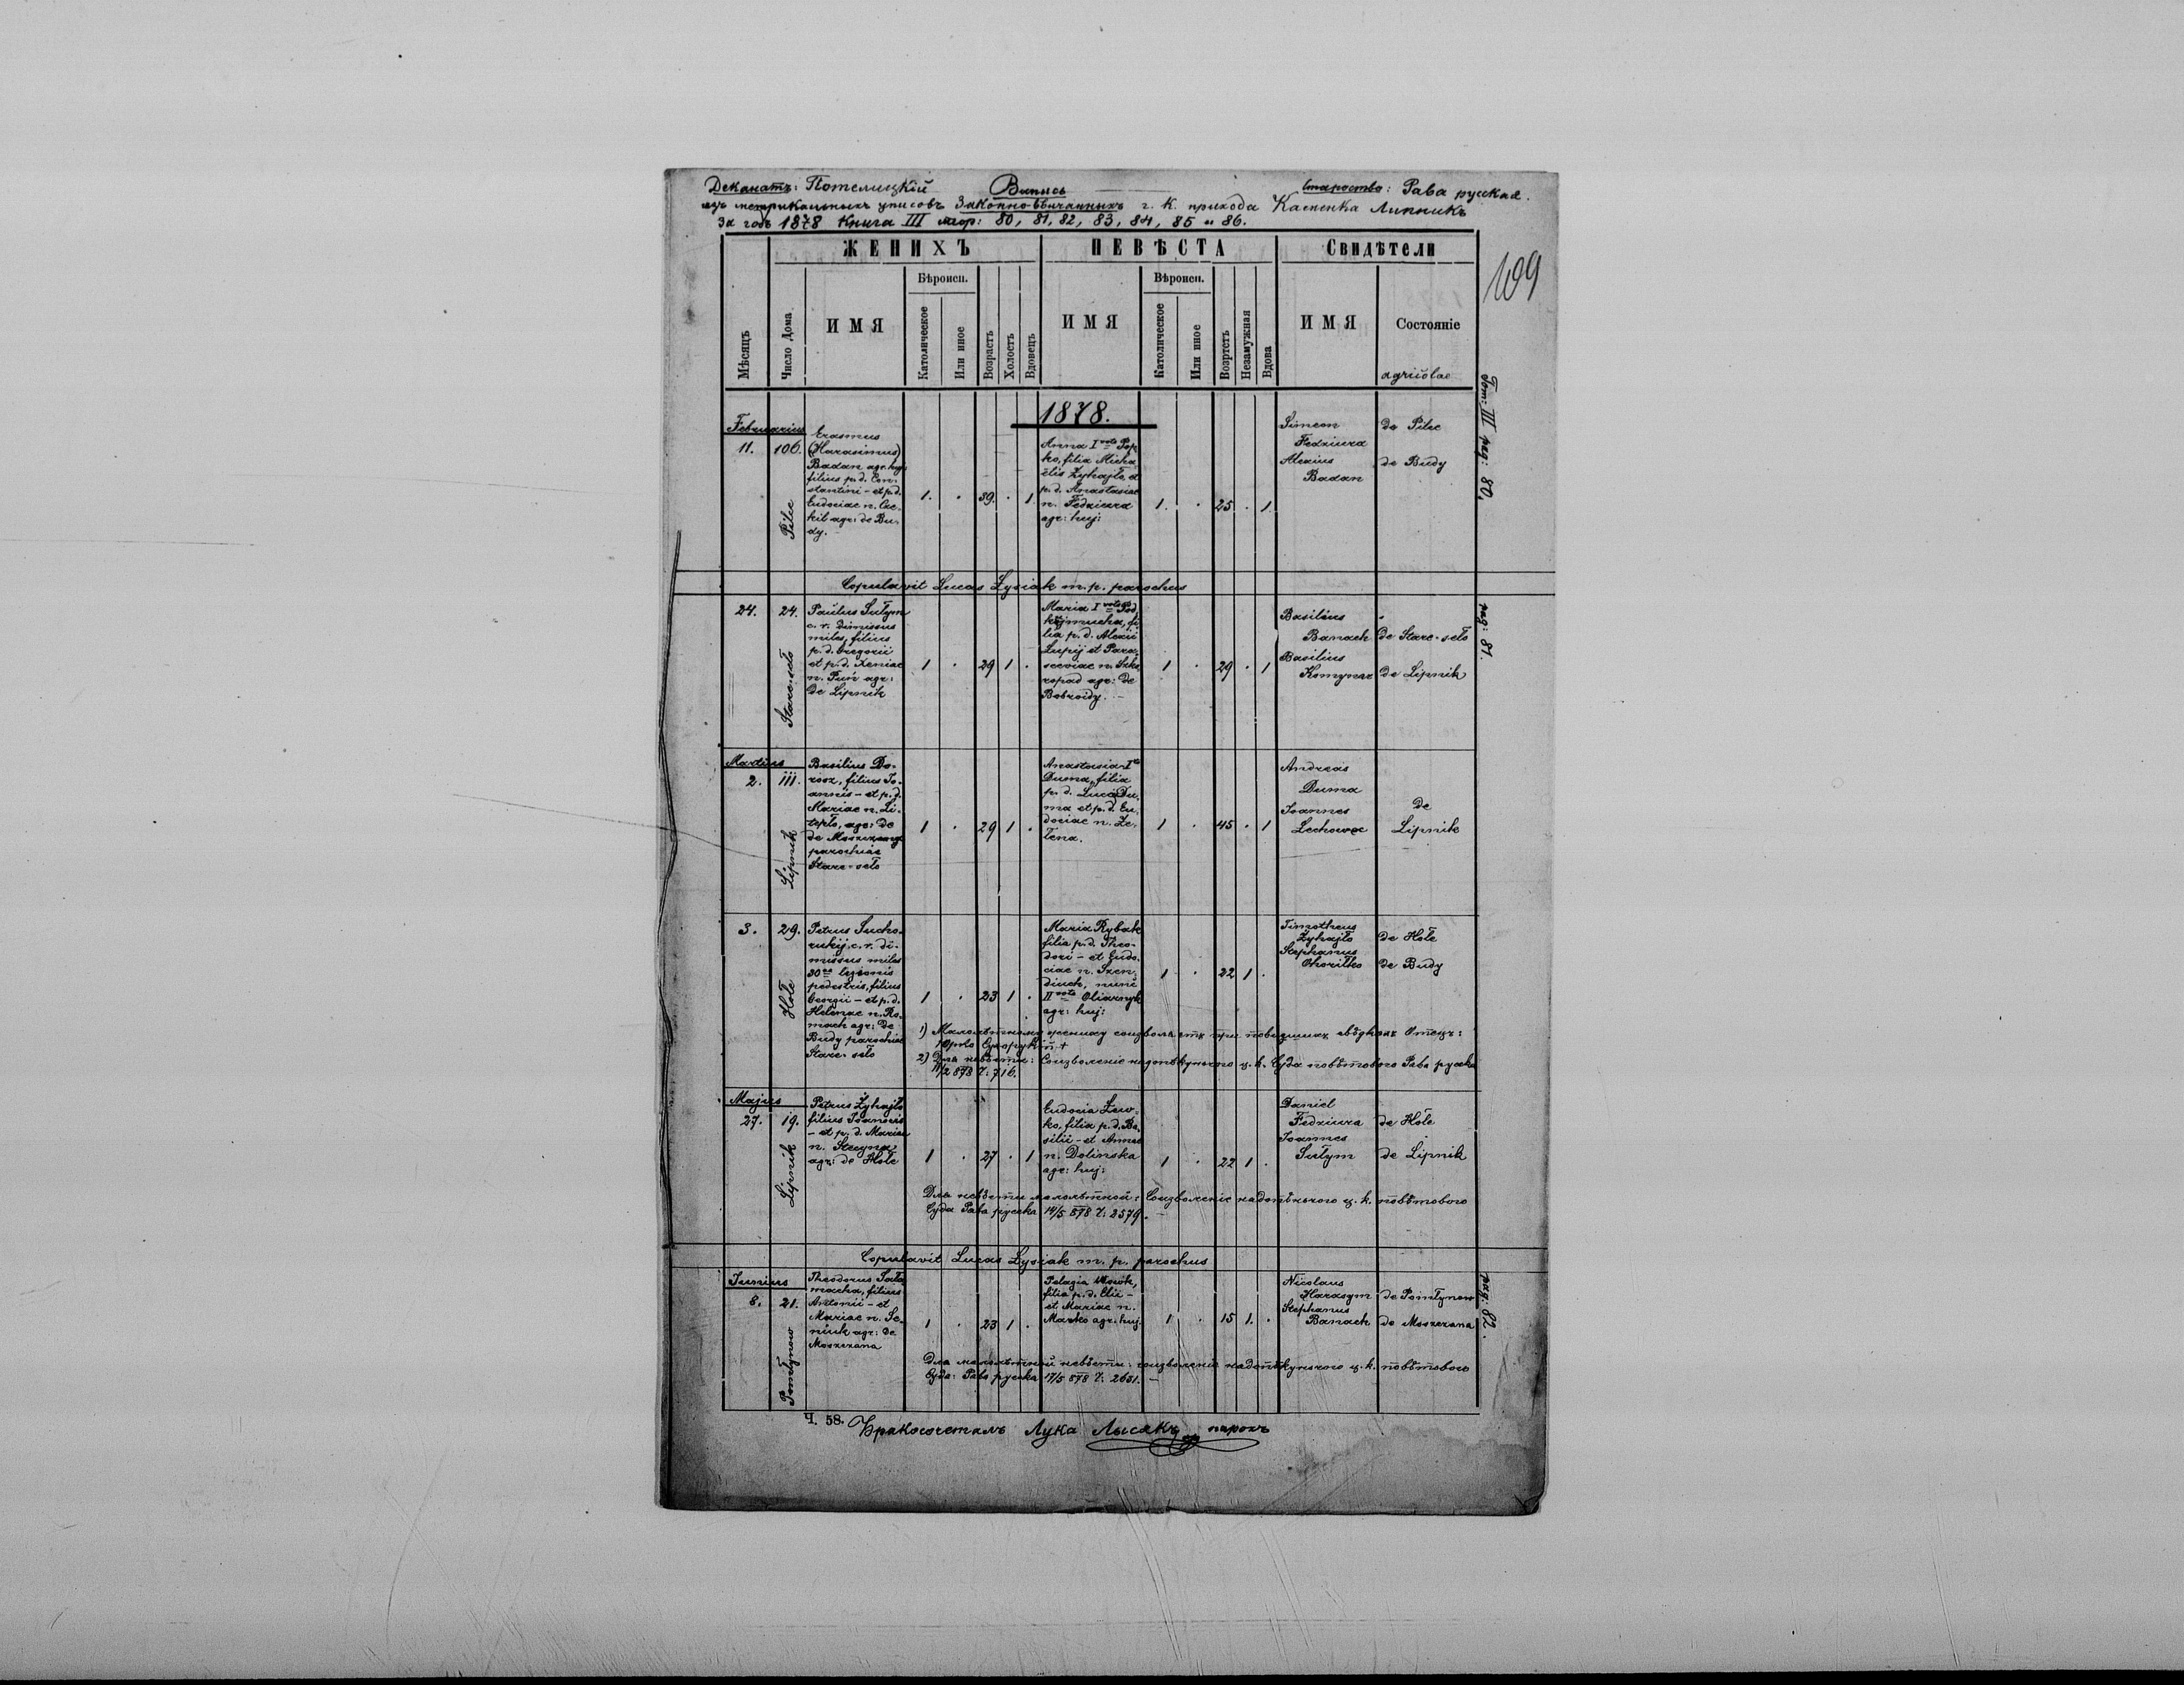 Деканатъ: Потелицкій Выпись Староство: Рава русская.
изъ метрикальныхъ уписовъ Законно-вѣнчанныхъ г. к. прихода Каменка Липникъ
За годъ 1878 Книга III стор: 80, 81, 82, 83, 84, 85 и 86.
109
ЖЕНИХЪ НЕВѢСТА Свидѣтели
Мѣсяцъ
Число Дома
ИМЯ
Вѣроисп.
Католическое
Или иное
Возрастъ
Холостъ
Вдовецъ
ИМЯ
Вѣроисп.
Католическое
Или иное
Возртстъ
Незамужная
Вдова
ИМЯ
Состояніе
agricolae
Tom: III pag: 80.
1878.
Februarius
11. 106.
Pilec
Erasmus
(Harasimus)
Badan agr. huj:
filius p. d. Con-
stantini - et p. d.
Eudociae n.
kil agr: de Bu-
dy.
1. . 39. . 1
Anna I voto Pop-
ko, filia Micha-
ëlis Zyhajło et
p. d. Anastasiae
n. Fedziura
agr: huj:
1. . 25 . 1
Simeon
Fedziura
de Pilec
Alexius
Badan
de Budy
Copulavit Lucas Łysiak m. p. parochus
pag: 81.
24. 24.
Stare-seło
Paulus Sułym
c. r. dimissus
miles, filius
p. d. Gregorii
et p. d. Xeniae
n. Puń agr:
de Lipnik
1 . 29 1 .
Maria I voto Pod-
kijmucha, fi-
lia p. d. Alexii
Łupij et Para-
sceviae n.
agr: de
Bobroidy. -
1 . 29 . 1
Basilius
Banach de Stare-seło
Basilius
Komynar de Lipnik
Martius
2. 111.
Lipnik
Basilius Do-
rosz, filius Jo-
annis - et p. d.
Mariae n. Li-
tepło, agr: de
de Moszczana
parochiae
Stare-seło
1 . 29 1 .
Anastasia I to
Duma, filia
p. d. Lucae Du-
ma et p. d. Eu-
dociae n. Ze-
lena.
1 . 45 . 1
Andreas
Duma
Joannes
Lechowec
de
Lipnik
3. 29.
Hole
Petrus Sucho-
rukij, c. r. di-
missus miles
30ae legionis
pedestris, filius
Georgii - et p. d.
Helenae n. Ro-
mach agr: de
Budy parochiae
Stare-seło
1 . 23 1 .
Maria Rybak
filia p. d. Theo-
dori - et Eudo-
ciae n. Szen-
diuch, nunc
II voto Oliarnyk
agr: huj:
1 . 22 1 .
Timotheus
Zyhajło de Hole
Stephanus
Chorilko de Budy
1) Малолѣтному жениху соизволяетъ при повысшихъ свѣдкахъ Отецъ:
Юрко Сухорукій +
2) Для невѣсты: Соизволеніе надопѣкунчого ц. к. Суда повѣтового Рава русска
11/2 878 Ч: 716.
Majus
27. 19.
Lipnik
Petrus Zyhajło
filius Joannis
- et p. d. Mariae
n. Stegna
agr: de Hole
1 . 27 . 1
Eudocia Lew-
ko, filia p. d. Ba-
silii - et Annae
n. Dolinska
agr: huj:
1 . 22 1 .
Daniel
Fedziura de Hole
Joannes
Sułym de Lipnik
Для невѣсты малолѣтной: Соизволеніе надопѣкунчого ц. к. повѣтового
Суда Рава русска 14/5 878 Ч: 2579. -
Copulavit Lucas Łysiak m. p. parochus
pag: 82.
Junius
8. 21.
Pomłynow
Theodorus Sała-
macha, filius
Antonii - et
Mariae n. Se-
niuk agr: de
Moszczana
1 . 23 1 .
Pelagia Wowk,
filia p. d. Elii -
et Mariae n.
Marko agr: huj:
1 . 15 1. .
Nicolaus
Harasym de Pomłynow
Stephanus
Banach de Moszczana
Для малолѣтной невѣсты: соизволеніе надопѣкунчого ц. к. повѣтового
Суда: Рава русска 17/5 878 Ч: 2651. -
Ч. 58. Бракосочеталъ Лука Лысякъ парохъ